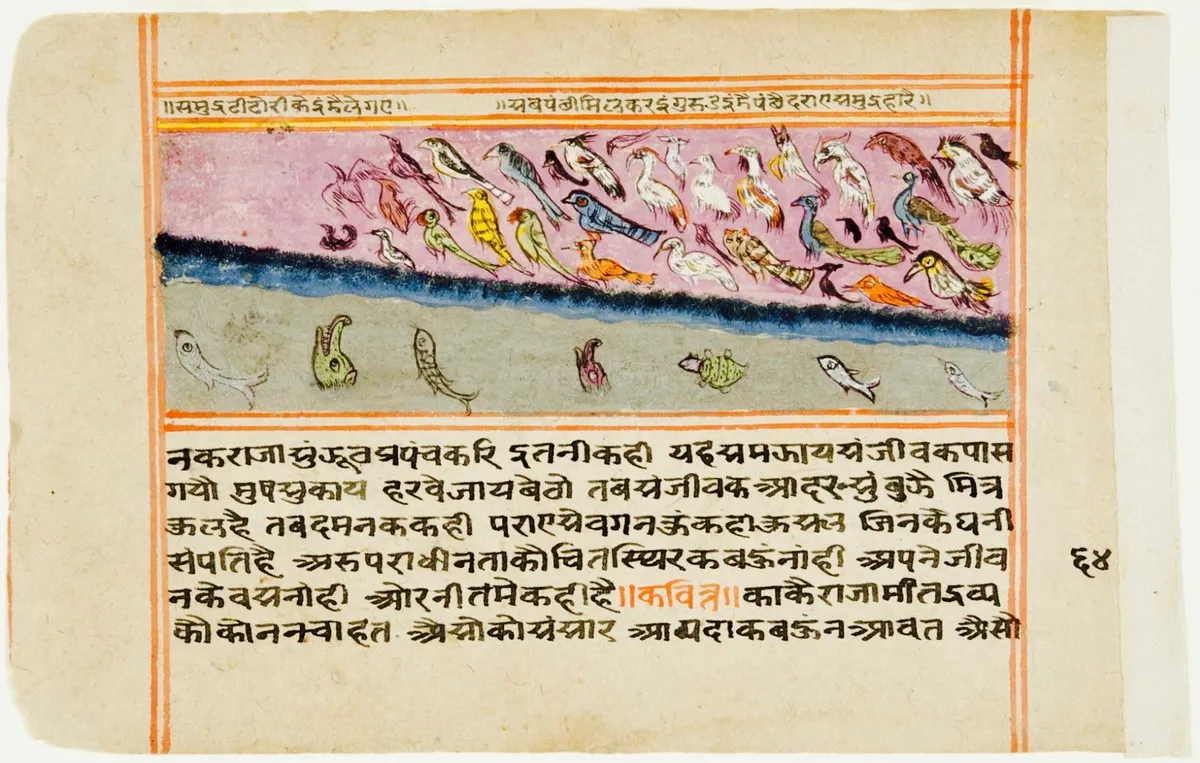 ॥समुद्रटीटोरीकेइंमैलेगए॥ ॥सबपंछीमिलकरइंगुरूउइंमैपंछैदराएसमुद्रहारै॥
नकराजा प्रपंचकरि इतनीकही यहैसमझायसंजीवकपास
गयौ हरवेजायबेठो तबसजीवक आदरसुंबुझै मित्र
तबदमनककही पराएसेवगनकुंकहाकुसल जिनकैधनी
संपतिहै अरुपराधीनताकौचितस्थिरकबऊनांही अपनेजीव
नकेवसनांही ओरनीतमेकहीहै॥कवित्त॥काकैराजामींतद्रव्य
कौकोननचाहत अैसोकोसंसार आपदाकबऊनआवत अैसो
६४